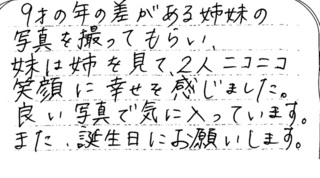 9才の年の差がある姉妹の
写真を撮ってもらい、
妹は姉を見て、2人ニコニコ
笑顔に幸せを感じました。
良い写真で気に入っています。
また、誕生日にお願いします。